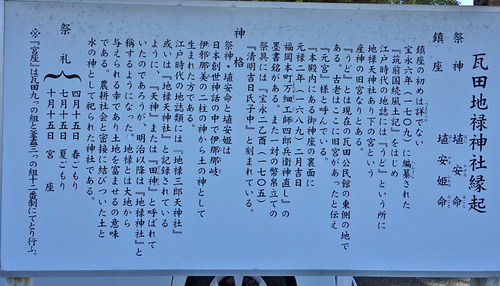 瓦田地禄神社縁起
祭神 埴安命
埴安姫命
鎮座
鎮座の初めは詳でない
宝永六年(一七〇九)に編纂された
『筑前国続風土記』をはじめ
江戸時代の地誌には「うど」という所に
地禄天神社あり下の宮という
産神の旧宮なりとある。
「うど」とは現在の瓦田公民館の東側の地で
ある。古老はここに旧宮があったと伝え
『元宮』様と呼んでいる。
『本殿内にある御神座の裏面に
元禄二年(一六八九)二月吉日
福岡本町万細工師四郎兵衛神直し』の
墨書銘がある。また一対の幣帛立ての
祭具には『于永二乙酉(一七〇五)
『清明吉日氏子中』と刻まれている。
神格
祭神・埴安命と埴安姫は
日本創世神話の中で伊邪那岐
伊邪那美の二柱の神から土の神として
生まれた方である。
江戸時代の地誌類には『地禄三郎天神社』
或いは『地禄天神社』と記録されている
ように『天神』または『田神』と呼ばれて
いたのであろうが、明治以降は『地禄神社』と
称するようになった。地禄とは大地から
与えられる幸であり土地を富ませるの意味
である。農耕社会と密接に結びついた土と
水の神として祀られた神社である。
祭礼
四月十五日 春ごもり
七月十五日 夏ごもり
十月十五日 宮座
※『宮座』は瓦田九つの組と釜蓋三つの組十二番制にてとり行ふ。